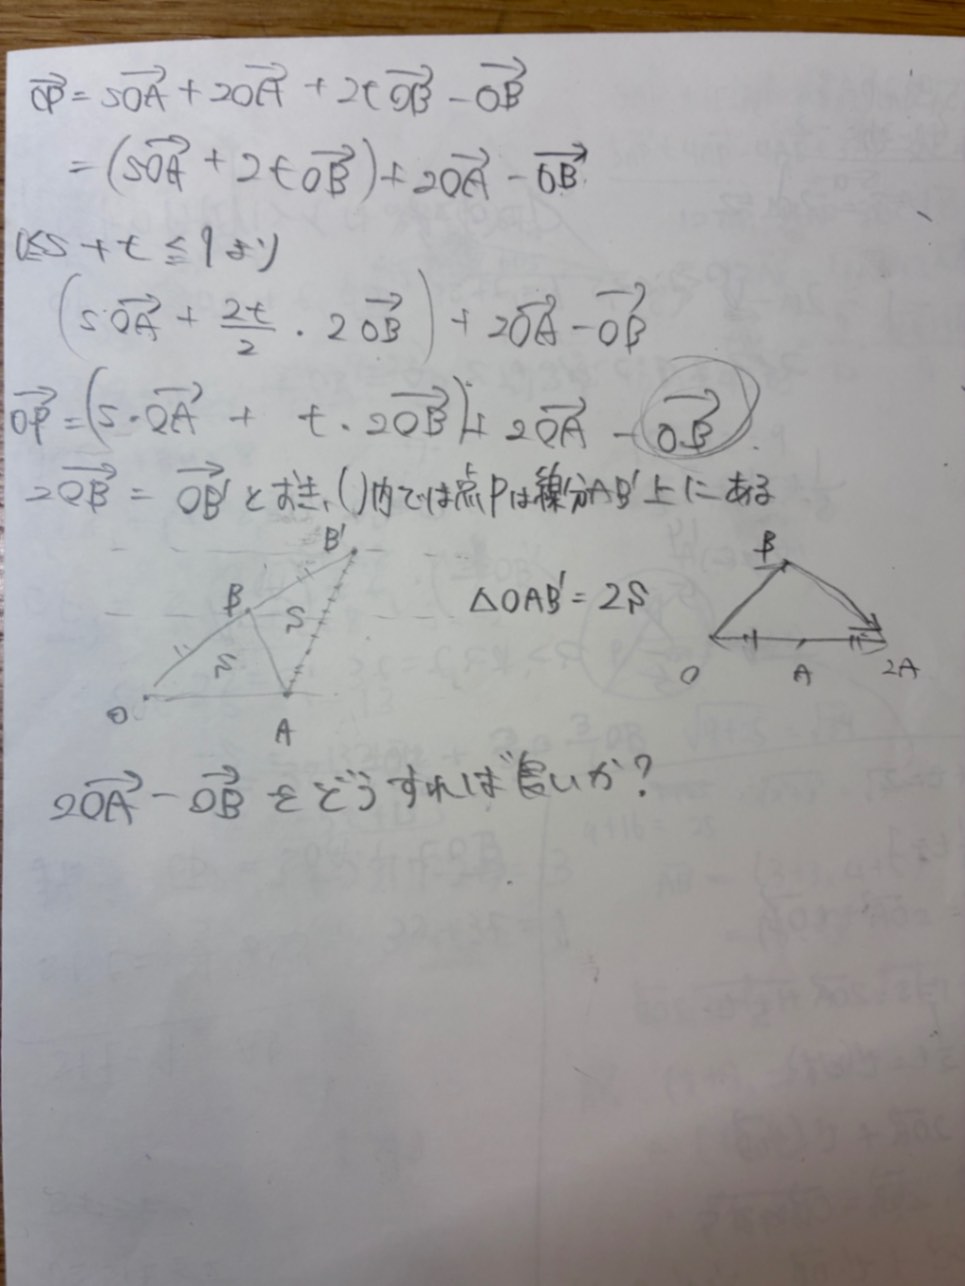 OP→ = sOA→ + 2OA→ + 2tOB→ − OB→
= (sOA→ + 2tOB→) + 2OA→ − OB→
0≦s + t ≦ 1 より
(s OA→ + 2t/2 · 2OB→) + 2OA→ − OB→
OP→ = (s·OA→ + t·2OB→) + 2OA→ − OB→.
2OB→ = OB'→ とおき、( )内では点Pは線分AB'上にある
B'
B
S
S
O
A
△OAB' = 2S
B
O
A
2A
2OA→ − OB→ をどうすれば良いか?